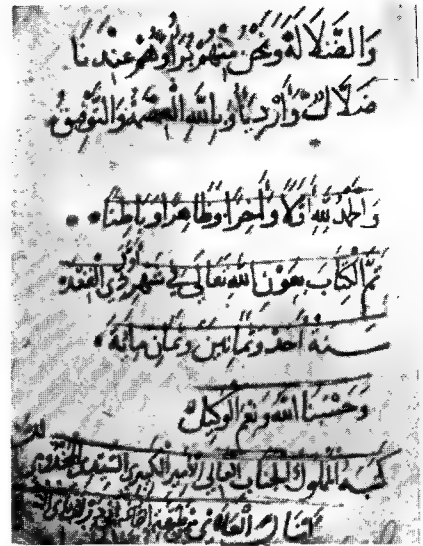 وَالضَّلَالَةِ وَنَحْنُ مِنْهُمْ بُرَآءُ وَهُمْ عِنْدَنَا
ضُلَّالٌ وَأَرْدِيَاءُ وَبِاللَّهِ الْعِصْمَةُ وَالتَّوْفِيقُ
وَالْحَمْدُ لِلَّهِ أَوَّلًا وَآخِرًا وَظَاهِرًا وَبَاطِنًا
تَمَّ الْكِتَابُ بِعَوْنِ اللَّهِ تَعَالَى فِي أَوَّلِ شَهْرِ ذِي الْقَعْدَةِ
سَنَةَ أَحَدٍ وَثَمَانِينَ وَثَمَانِ مِائَةٍ
وَحَسْبُنَا اللَّهُ وَنِعْمَ الْوَكِيلُ
كتبه المملوك الجناب العالي الأمير الكبيري السيفي